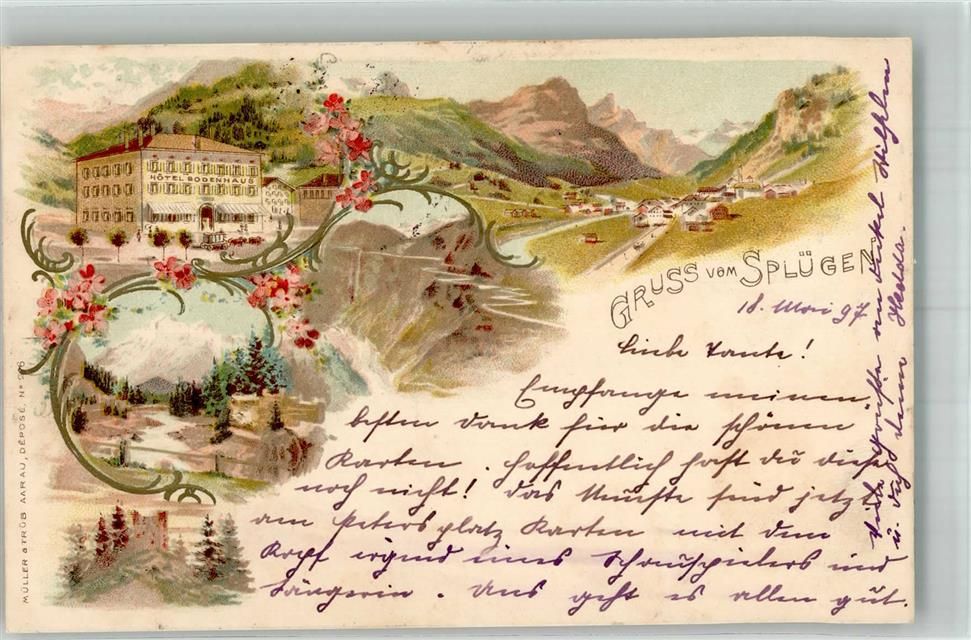 HÔTEL BODENHAUS
GRUSS VOM SPLÜGEN
18. Mai 97
Liebe Tante!
Empfange meinen
besten Dank für die schönen
Karten. Hoffentlich hast du diese
noch nicht! Das Neuste sind jetzt
am Petersplatz Karten mit dem
Kopf irgend eines Schauspielers und
Sängerin. Uns geht es allen gut.
Viele Grüsse an Onkel Wilhelm
u. dich von Hedda.
MÜLLER & TRÜB AARAU, DÉPOSÉ, Nº